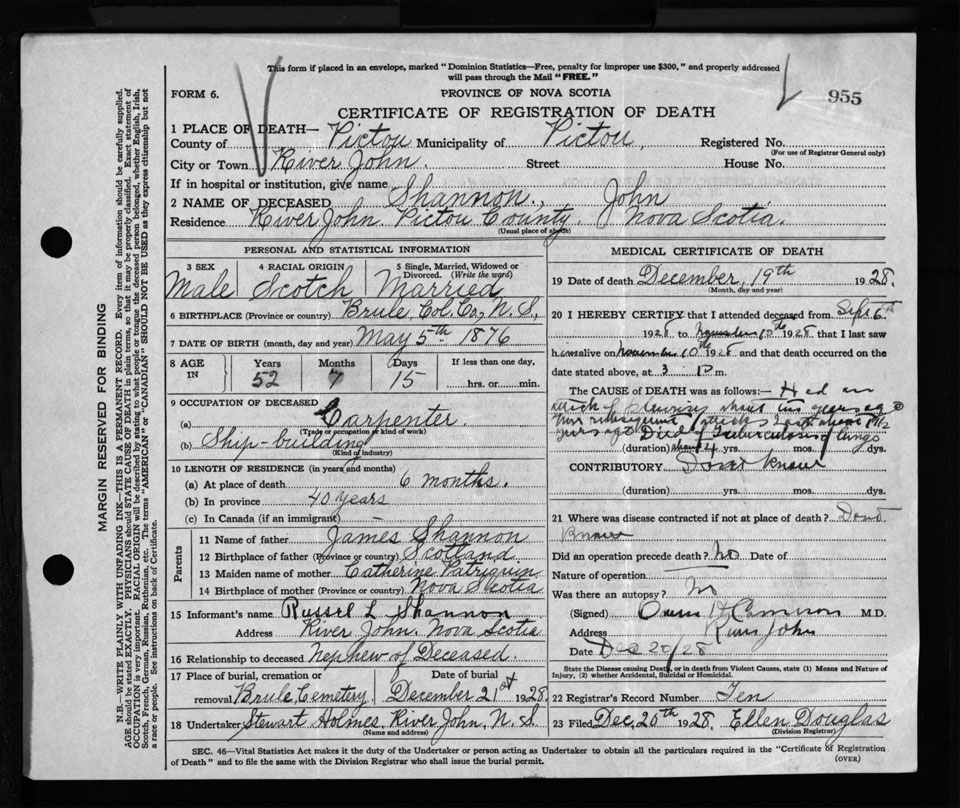 This form if placed in an envelope, marked "Dominion Statistics—Free, penalty for improper use $300," and properly addressed
will pass through the Mail "FREE."
FORM 6.
PROVINCE OF NOVA SCOTIA
955
CERTIFICATE OF REGISTRATION OF DEATH
1 PLACE OF DEATH—
County of Pictou Municipality of Pictou, Registered No.
(For use of Registrar General only)
City or Town River John. Street House No.
If in hospital or institution, give name
2 NAME OF DECEASED Shannon, John
Residence River John. Pictou County. Nova Scotia.
(Usual place of abode)
PERSONAL AND STATISTICAL INFORMATION
3 SEX 4 RACIAL ORIGIN 5 Single, Married, Widowed or
Divorced. (Write the word)
Male Scotch Married
6 BIRTHPLACE (Province or country) Brule, Col. Co, N. S,
7 DATE OF BIRTH (month, day and year) May 5th 1876
8 AGE IN Years Months Days If less than one day,
52 7 15 hrs. or min.
9 OCCUPATION OF DECEASED
(a) Carpenter
(Trade or occupation or kind of work)
(b) Ship-building
(Kind of industry)
10 LENGTH OF RESIDENCE (in years and months)
(a) At place of death 6 months.
(b) In province 40 years
(c) In Canada (if an immigrant) —
Parents
11 Name of father James Shannon
12 Birthplace of father (Province or country) Scotland
13 Maiden name of mother Catherine Patriquin
14 Birthplace of mother (Province or country) Nova Scotia
15 Informant's name Russel L Shannon
Address River John. Nova Scotia
16 Relationship to deceased Nephew of Deceased.
17 Place of burial, cremation or Date of burial
removal Brule Cemetery December 21st 1928
18 Undertaker Stewart Holmes River John, N. S.
(Name and address)
MEDICAL CERTIFICATE OF DEATH
19 Date of death December, 19th 1928.
(Month, day and year)
20 I HEREBY CERTIFY that I attended deceased from Sept 6th
1928 to 10th 1928 and that I last saw
him alive on November 10th 1928 and that death occurred on the
date stated above, at 3 P m.
The CAUSE of DEATH was as follows:— Had an
attack of pleurisy about ten years ago
1 1/2
years ago Died of Tuberculosis of lungs
(duration) about 4 yrs. mos. dys.
CONTRIBUTORY Dont know
(duration) yrs. mos. dys.
21 Where was disease contracted if not at place of death? Dont
know
Did an operation precede death? No Date of
Nature of operation
Was there an autopsy? No
(Signed) H Cameron M.D.
Address River John
Date Dec 20/28
State the Disease causing Death, or in death from Violent Causes, state (1) Means and Nature of
Injury, (2) whether Accidental, Suicidal or Homicidal.
22 Registrar's Record Number Ten
23 Filed Dec, 20th 1928. Ellen Douglas
(Division Registrar)
SEC. 46—Vital Statistics Act makes it the duty of the Undertaker or person acting as Undertaker to obtain all the particulars required in the "Certificate of Registration
of Death" and to file the same with the Division Registrar who shall issue the burial permit.
(OVER)
MARGIN RESERVED FOR BINDING
N.B.—WRITE PLAINLY, WITH UNFADING INK—THIS IS A PERMANENT RECORD. Every item of information should be carefully supplied.
AGE should be stated EXACTLY. PHYSICIANS should STATE CAUSE OF DEATH in plain terms, so that it may be properly classified. Exact statement of
OCCUPATION is very important. RACIAL ORIGIN will be described by stating to what people or tongue the deceased person belonged, whether English, Irish,
Scotch, French, German, Russian, Ruthenian, etc. The terms "AMERICAN" or "CANADIAN" SHOULD NOT BE USED as they express citizenship but not
a race or people. See instructions on back of Certificate.